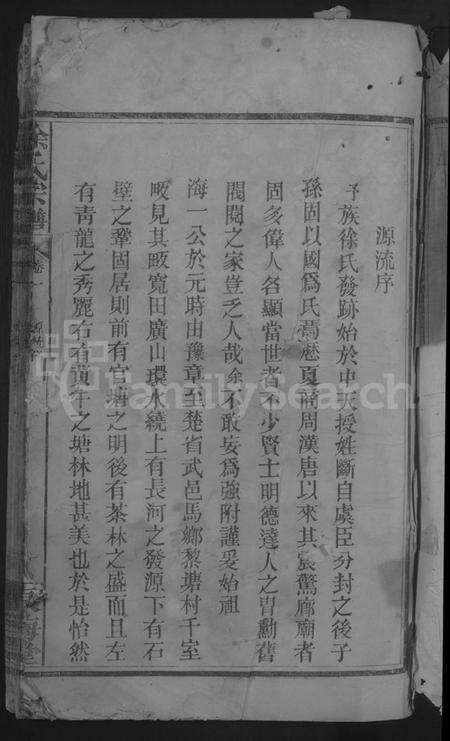 源流序
予族徐氏發跡始於中天授姓斷自虞臣分封之後子
孫固以國爲氏焉歷夏商周漢唐以來其宸驚廊廟者
固多偉人名顯當世者不少賢士明德達人之胄勳舊
閥閱之家豈乏人哉余不敢妄爲強附謹爰始祖
海一公於元時由豫章至楚省武邑馬鄉黎塘村千室
畈見其畈寬田廣山環水繞上有長河之發源下有石
壁之鞏固居則前有官塘之明後有茶林之盛而且左
有靑龍之秀麗右有黃牛之塘林地甚美也於是怡然
徐氏宗譜
卷一
FamilySearch